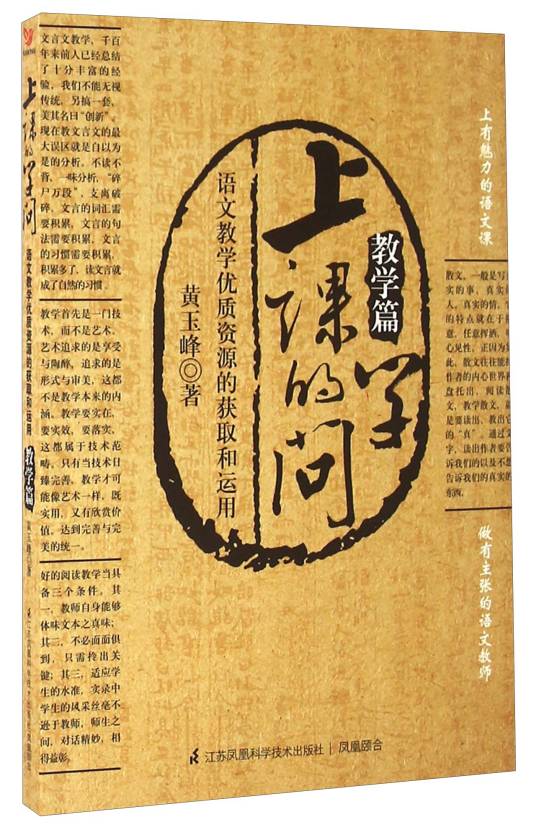 上课的学问
语文教学优质资源的获取和运用
教学篇
黄玉峰 著
文言文教学，千百
年来前人已经总结
了十分丰富的经
验，我们不能无视
传统，另搞一套，
美其名曰“创新”。
现在教文言文的最
大误区就是自以为
是的分析。不读不
背，一味分析，“碎
尸万段”，支离破
碎，文言的词汇需
要积累，文言的句
法需要积累，文言
的习惯需要积累，
积累多了，读文言就
成了自然的习惯。
教学首先是一门技
术，而不是艺术。
艺术追求的是享受
与陶醉，追求的是
形式与审美，这都
不是教学本来的内
涵。教学要实在，
要实效，要落实，
这都属于技术范
畴，只有当技术日
臻完善，教学才可
能像艺术一样，既
实用，又有欣赏价
值，达到完善与完
美的统一。
好的阅读教学当具
备三个条件。其
一，教师自身能够
体味文本之真味；
其二，不必面面俱
到，只需拎出关
键；其三，适应学
生的水准，实录中
学生的风采丝毫不
逊于教师，师生之
间，对话精妙，相
得益彰。
上课的学问
教学篇
语文教学优质资源的获取和运用
黄玉峰◎著
上有魅力的语文课
散文，一般是写真
实的事，真实的
人，真实的情，它
的特点就在于随
意，任意挥洒，明
心见性，正因为如
此，散文往往能将
作者的内心世界和
盘托出，阅读散
文，教学散文，就
是要读出、教出它
的“真”。通过文
字，读出作者要告
诉我们的以及不想
告诉我们的真实的
东西。
做有主张的语文教师
江苏凤凰科学技术出版社 | 凤凰颐合